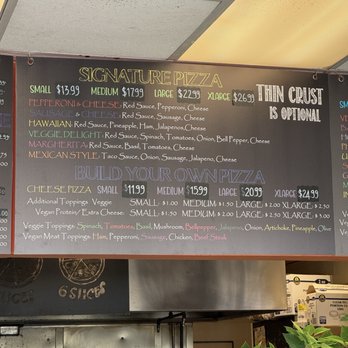 SIGNATURE PIZZA
SMALL $13.99 MEDIUM $17.99 LARGE $22.99 XLARGE $26.99
THIN CRUST
IS OPTIONAL
PEPPERONI & CHEESE: Red Sauce, Pepperoni, Cheese
SAUSAGE & CHEESE: Red Sauce, Sausage, Cheese
HAWAIIAN: Red Sauce, Pineapple, Ham, Jalapenos, Cheese
VEGGIE DELIGHT: Red Sauce, Spinach, Tomatoes, Onion, Bell Pepper, Cheese
MARGHERITA: Red Sauce, Basil, Tomatoes, Cheese
MEXICAN STYLE: Taco Sauce, Onion, Sausage, Jalapeno, Cheese
BUILD YOUR OWN PIZZA
CHEESE PIZZA SMALL $11.99 MEDIUM $15.99 LARGE $20.99 XLARGE $24.99
Additional Toppings Veggie SMALL- $1.00 MEDIUM $1.50 LARGE $2.00 XLARGE $2.50
Vegan Protein/ Extra Cheese: SMALL- $1.50 MEDIUM $2.00 LARGE $2.50 XLARGE $3.00
Veggie Toppings: Spinach, Tomatoes, Basil, Mushroom, Bellpepper, Jalapeno, Onion, Artichoke, Pineapple, Olive
Vegan Meat Toppings: Ham, Pepperoni, Sausage, Chicken, Beef Steak
6 slices